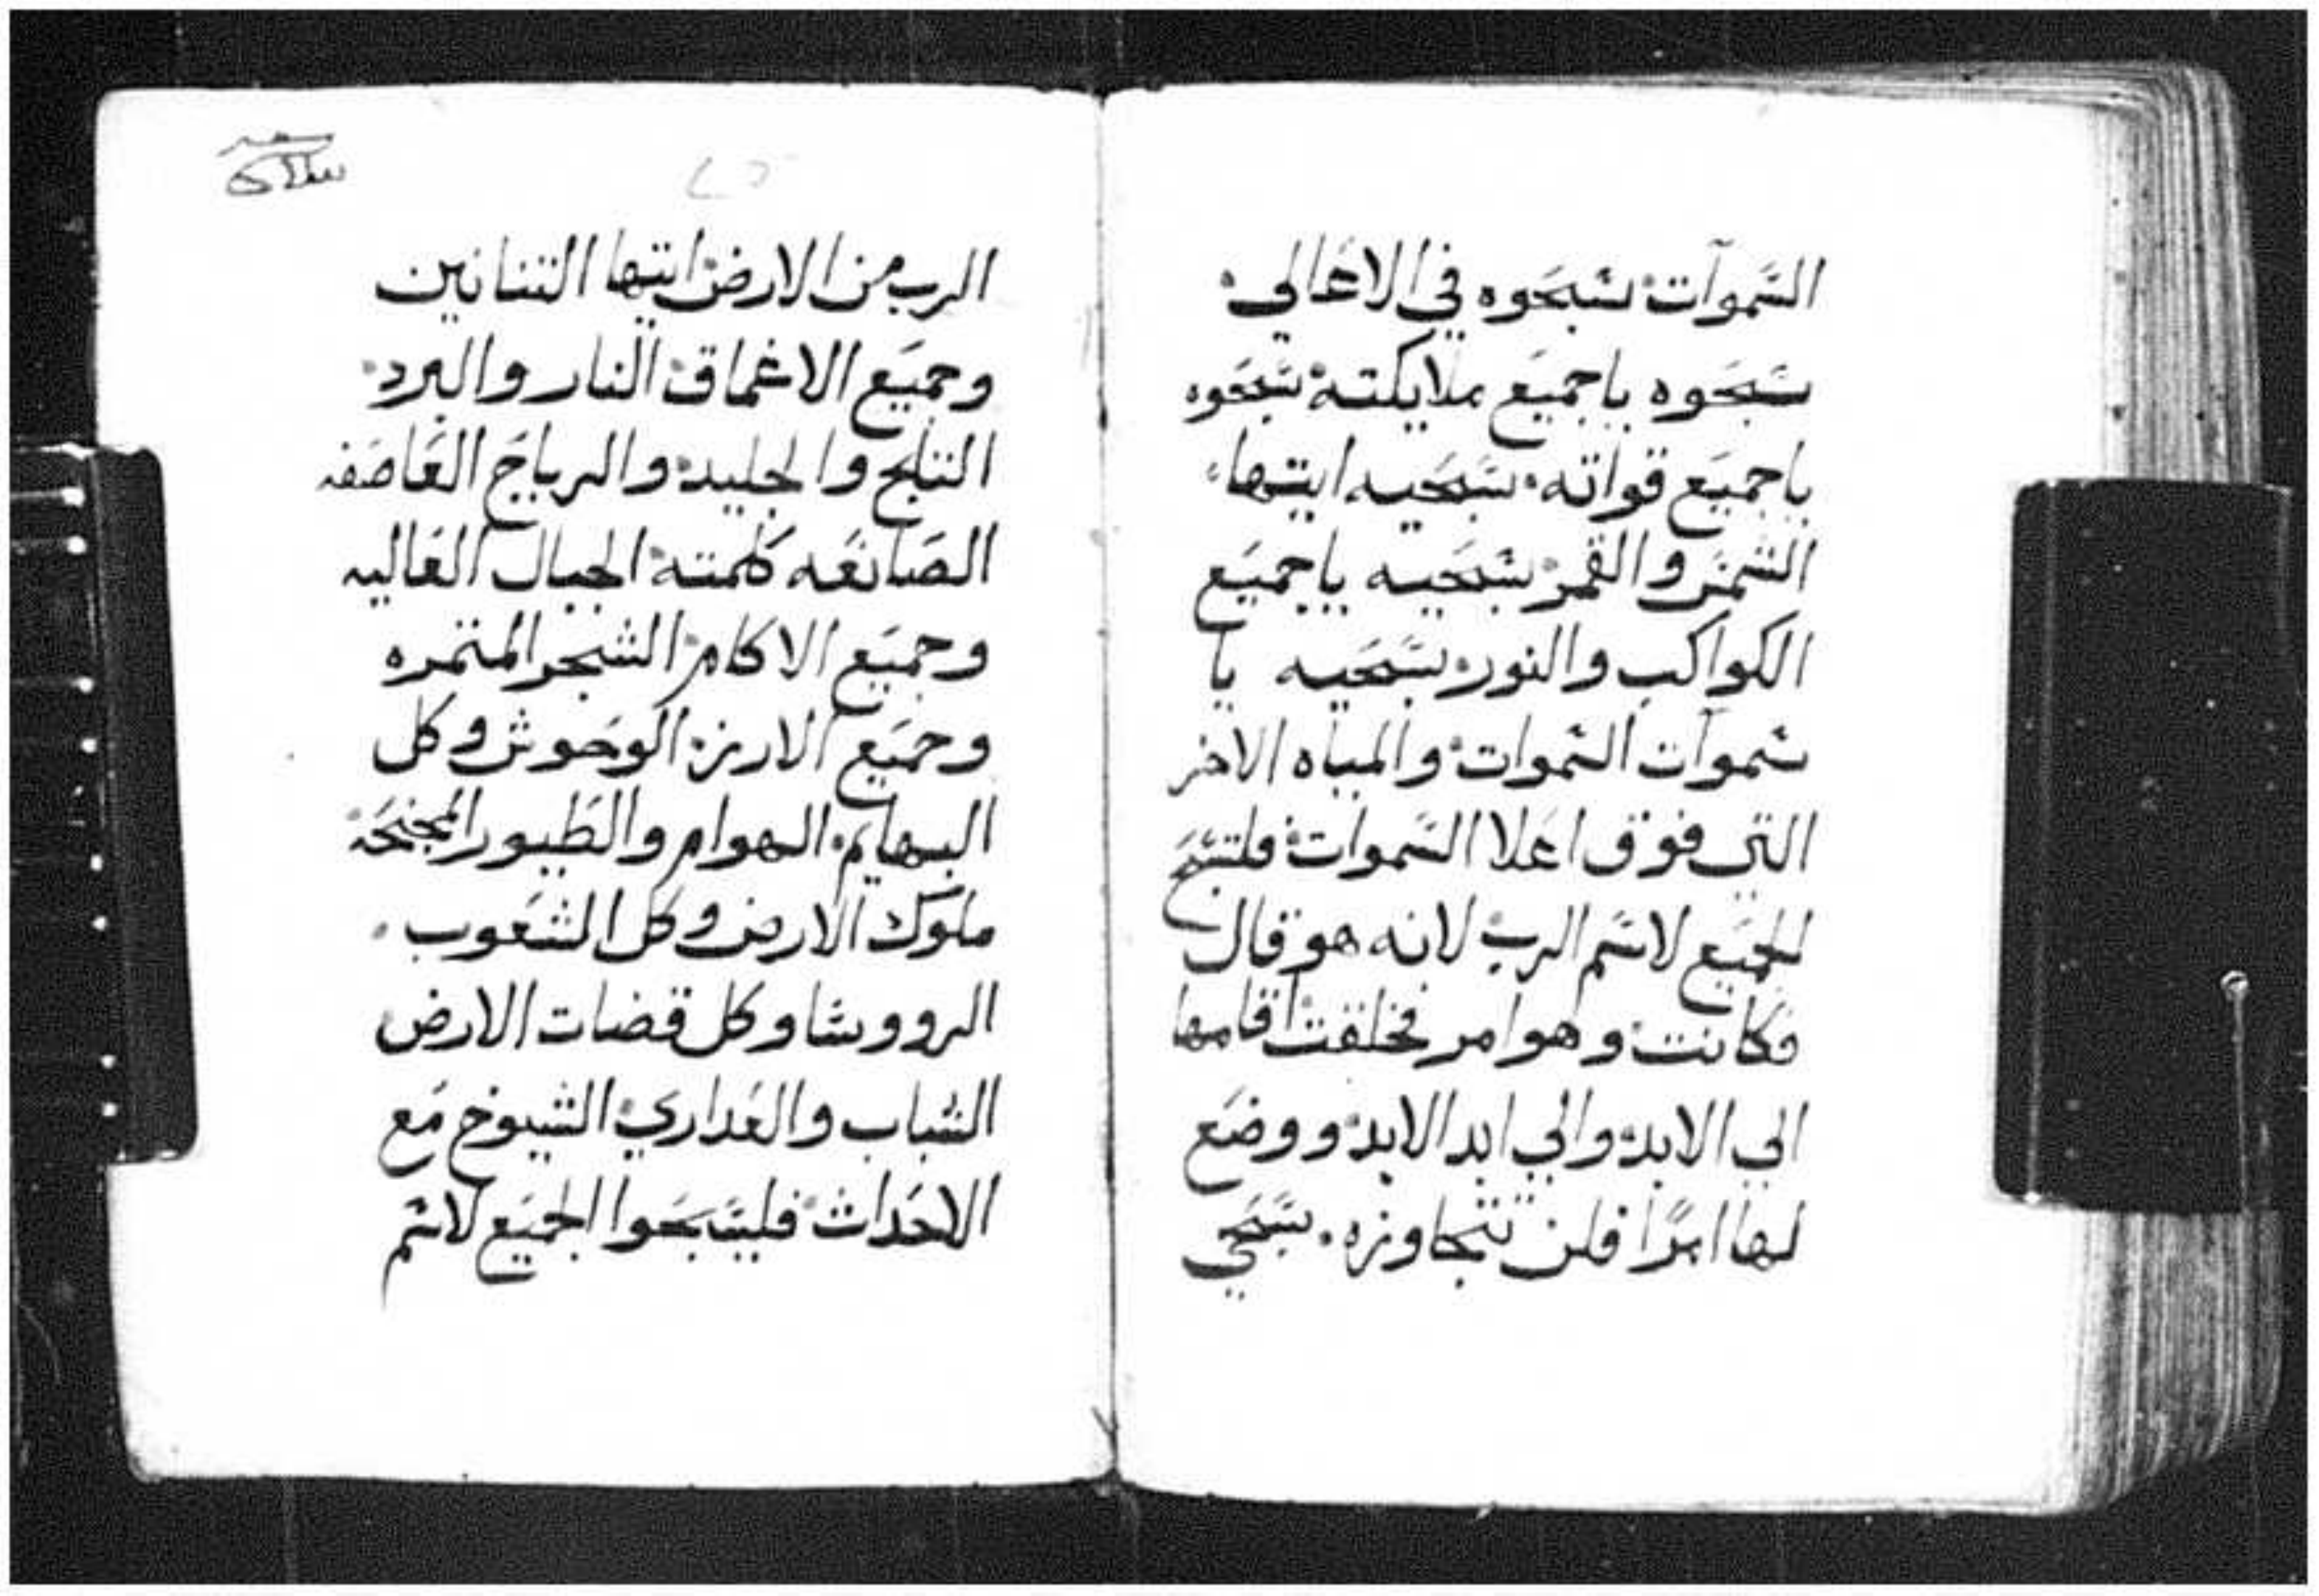 السموات سبحوه في الاعالي
سبحوه ياجميع ملايكته سبحوه
ياجميع قواته سبحيه ايتها
الشمس والقمر سبحيه ياجميع
الكواكب والنور سبحيه يا
سموات السموات والمياه الاخر
التي فوق اعلا السموات فلتسبح
الجميع لاسم الرب لانه هو قال
فكانت وهو امر فخلقت اقامها
الي الابد والي ابد الابد ووضع
لها امرًا فلن تتجاوزه سبحي
الرب من الارض ايتها التنانين
وجميع الاعماق النار والبرد
الثلج والجليد والرياح العاصفه
الصانعه كلمته الجبال العاليه
وجميع الاكام الشجر المثمره
وجميع الارز الوحوش وكل
البهايم الهوام والطيور المجنحة
ملوك الارض وكل الشعوب
الرووسا وكل قضات الارض
الشباب والعداري الشيوخ مع
الاحداث فليسبحوا الجميع لاسم